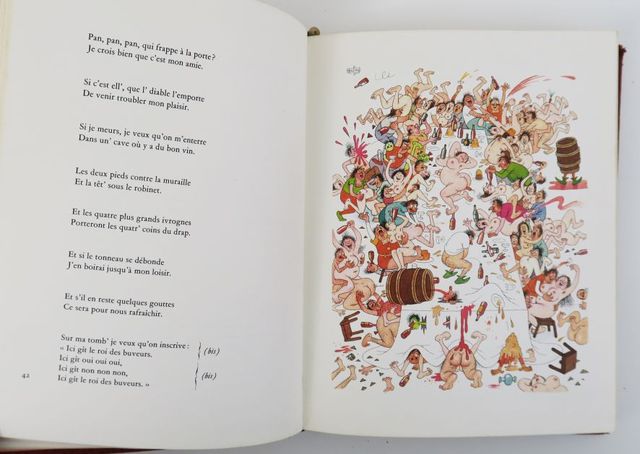 Pan, pan, pan, qui frappe à la porte?
Je crois bien que c'est mon amie.
Si c'est ell', que l' diable l'emporte
De venir troubler mon plaisir.
Si je meurs, je veux qu'on m'enterre
Dans un' cave où y a du bon vin.
Les deux pieds contre la muraille
Et la têt' sous le robinet.
Et les quatre plus grands ivrognes
Porteront les quatr' coins du drap.
Et si le tonneau se débonde
J'en boirai jusqu'à mon loisir.
Et s'il en reste quelques gouttes
Ce sera pour nous rafraichir.
Sur ma tomb' je veux qu'on inscrive :
« Ici gît le roi des buveurs. (bis)
Ici gît oui oui oui,
Ici gît non non non,
Ici gît le roi des buveurs. » (bis)
42